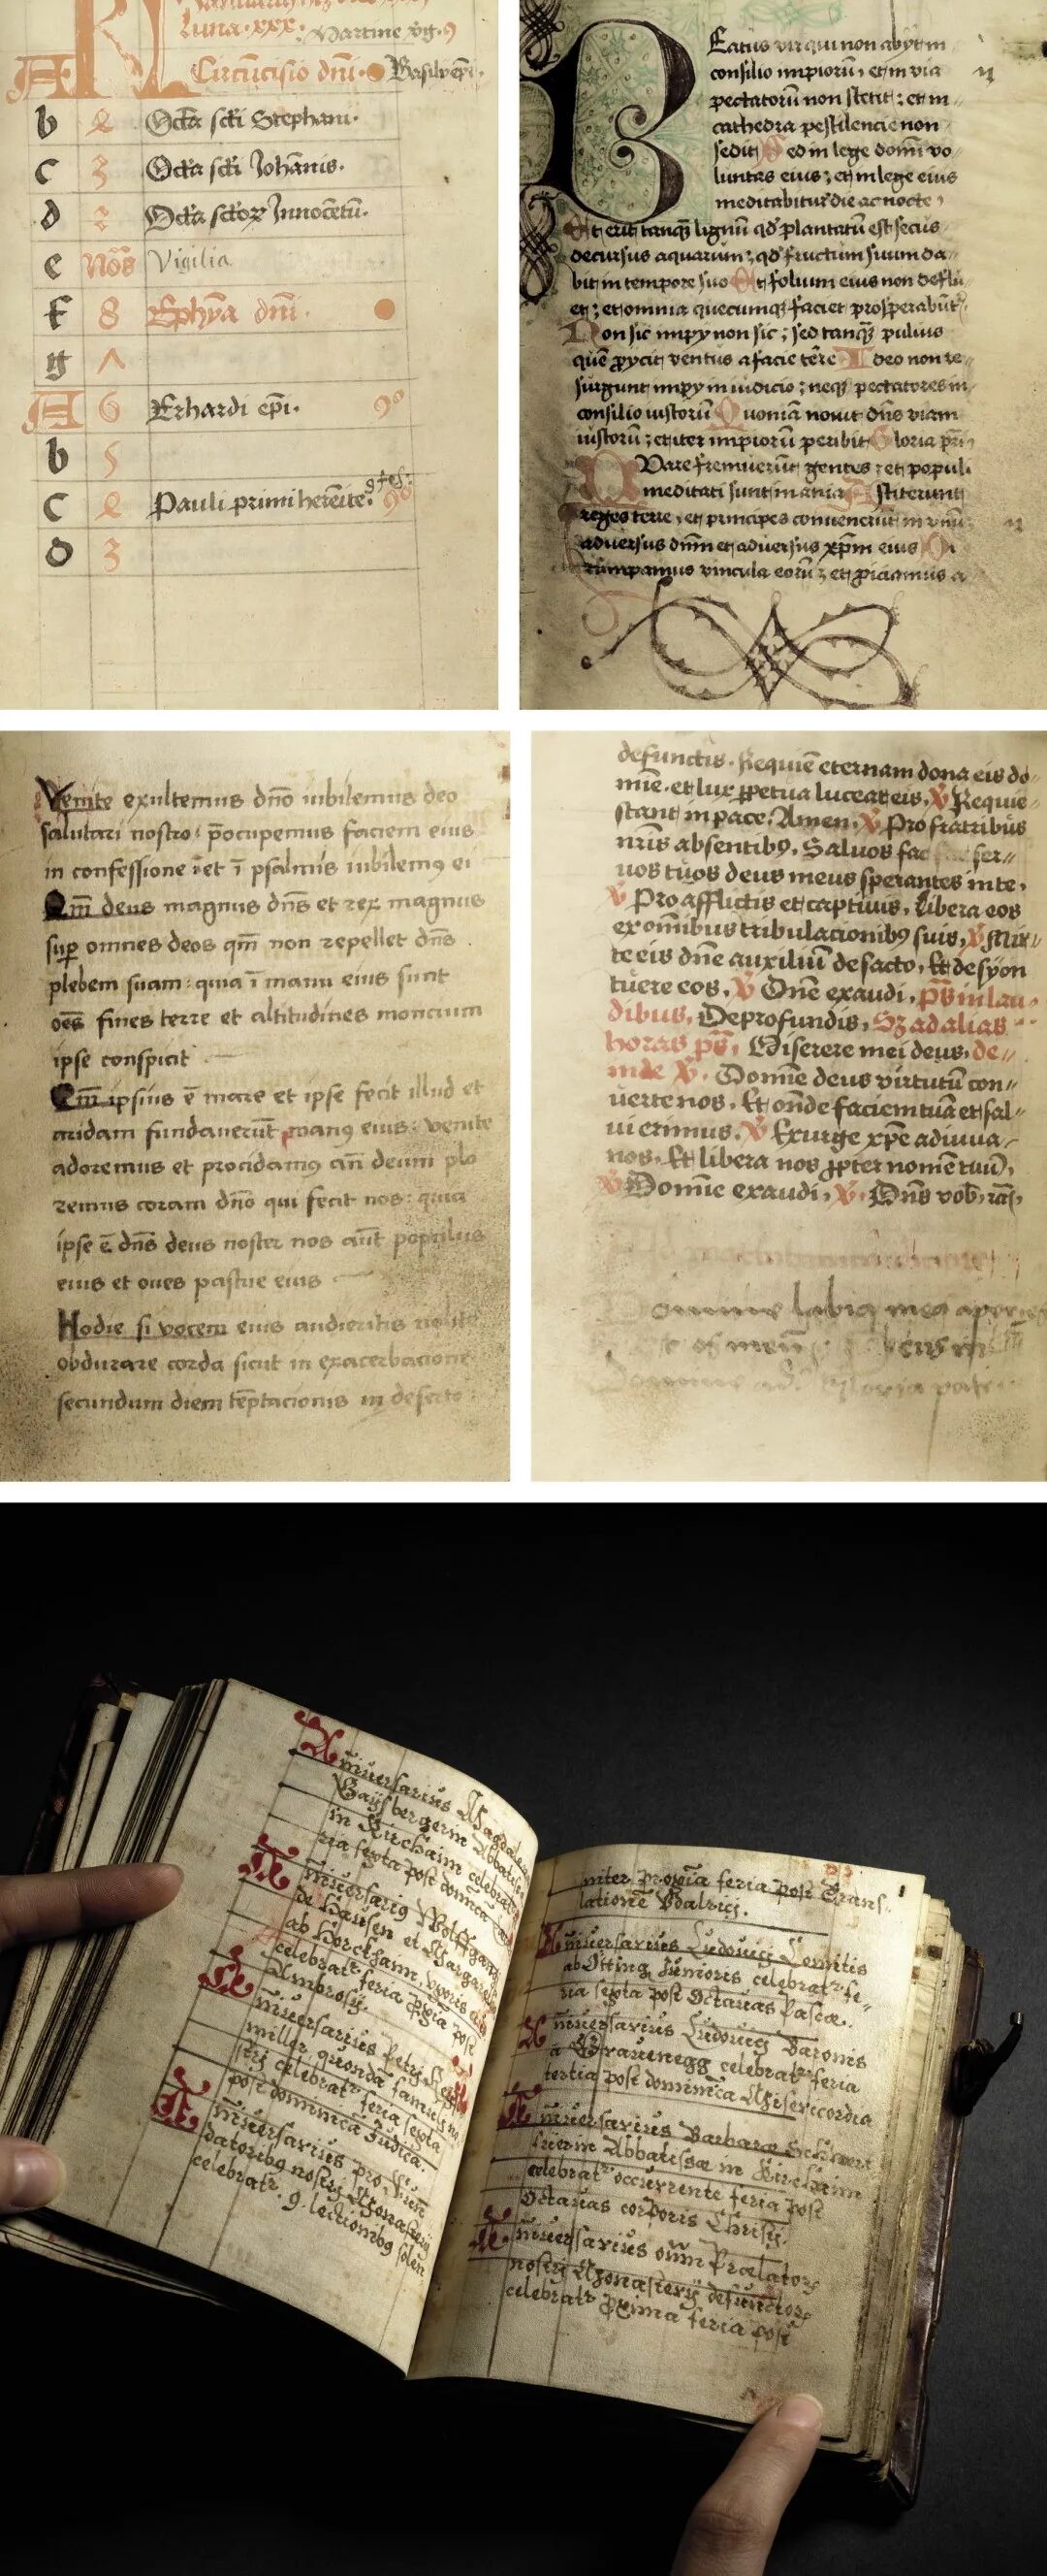 Luna · xxx · Martine vg · 9
A Circūcisio dnī · Basilii epi ·
b 2 Octa scti Stephani ·
c 3 Octa scti Johānis ·
d 2 Octa sctoꝝ Innocētū ·
e Nōs Vigilia
f 8 Ephya dnī ·
g ʌ
A 6 Erhardi epi · 9°
b 5
c 2 Pauli primi heremite · 9°
d 3
Beatus vir qui non abijt in
consilio impiorū ; et in via
peccatorū non stetit ; et in
cathedra pestilencie non
sedit Sed in lege domī vo
luntas eius ; et in lege eius
meditabitur die ac nocte ;
Et erit tanqȝ lignū qd plantatū est secus
decursus aquarum ; qd fructum suum da
bit in tempore suo Et folium eius non deflu
et ; et omnia quecumqȝ faciet prosperabūt
Non sic impij non sic ; sed tanqȝ puluis
quē ꝓijcit ventus a facie tēre Ideo non re
surgunt impij in iudicio ; neqȝ peccatores in
consilio iustorū Quoniā nouit dn̄s viam
iustorū ; et iter impiorū peribit Gloria pri
Quare fremuerūt gentes ; et populi
meditati sunt inania Astiterunt
reges terre ; et principes conuenerūt in vnū
aduersus dnm et aduersus xpm eius Di
rūmpamus vincula eorū ; et ꝓiciamus a
Venite exultemus dno iubilemus deo
salutari nostro : p̄ocupemus faciem eius
in confessione et ī psalmis iubilemꝯ ei
Qm̄ deus magnus dn̄s et rex magnus
sup omnes deos qm̄ non repellet dn̄s
plebem suam : quia ī manu eius sunt
oēs fines terre et altitudines moncium
ipse conspicit
Qm̄ ipsius ē mare et ipse fecit illud et
aridam fundauerūt manꝯ eius : venite
adoremus et procidamꝯ añ deum plo
remus coram dno qui fecit nos : quia
ipse ē dn̄s deus noster nos aūt populus
eius et oues pascue eius
Hodie si vocem eius audieritis nolite
obdurare corda sicut in exacerbacione
secundum diem tēptacionis in deserto
defunctis . Requiē eternam dona eis do
mīe . et lux ꝑpetua luceat eis , V Requie
stant in pace . Amen , V Pro fratribus
nr̄is absentibꝯ , Saluos fac ser
uos tuos deus meus sperantes in te ,
V Pro afflictis et captiuis , Libera eos
ex omībus tribulacionibꝯ suis , V Mit
te eis dn̄e auxiliū de sācto , Et de syon
tuere eos , V Dn̄e exaudi , ps in lau
dibus , De profundis , Sꝫ ad alias
horas ps , Miserere mei deus , de
inde V . Domīe deus virtutū con
uerte nos , Et on̄de faciem tuā et sal
ui erimus . V Exurge xp̄e adiuua
nos , Et libera nos ꝓpter nomē tuū ,
V Domīe exaudi , V . Dn̄s vob ,
labia mea aperies
os meū
Gloria patri
Anniuersarius Magdalene
Gaÿsbergerin Abbatissæ
in Kirchaim celebrat
ria sexta post dominica
Anniuersariꝯ Wolffgangi
de Hausen et Margaretæ
ab Horckhaim, vxoris eiꝯ
celebrat feria ꝓxīa post
Ambrosij.
Anniuersarius Petri
miller, quondā famuli no
stri celebrat feria sexta
post dominica Judica.
Anniuersarius pro
datoribꝯ nostri Monasterij
celebrat. 9. lectionibꝯ solen
niter proxīa feria post Trans-
lationē Vdalrici.
Anniuersarius Ludouici Comitis
ab Otting Junioris celebrat fe-
ria sexta post Octauas Pascæ.
Anniuersarius Ludouici Baronis
a Grauenegg celebrat feria
tertia post dominica Misericordia
Anniuersarius Barbaræ
Abbatissæ in Kircheim
celebrat occurrente feria post
Octauas corporis Christi.
Anniuersarius oīm Prælatorꝝ
nostri Monasterij defunctorꝝ
celebrat ꝓxima feria post